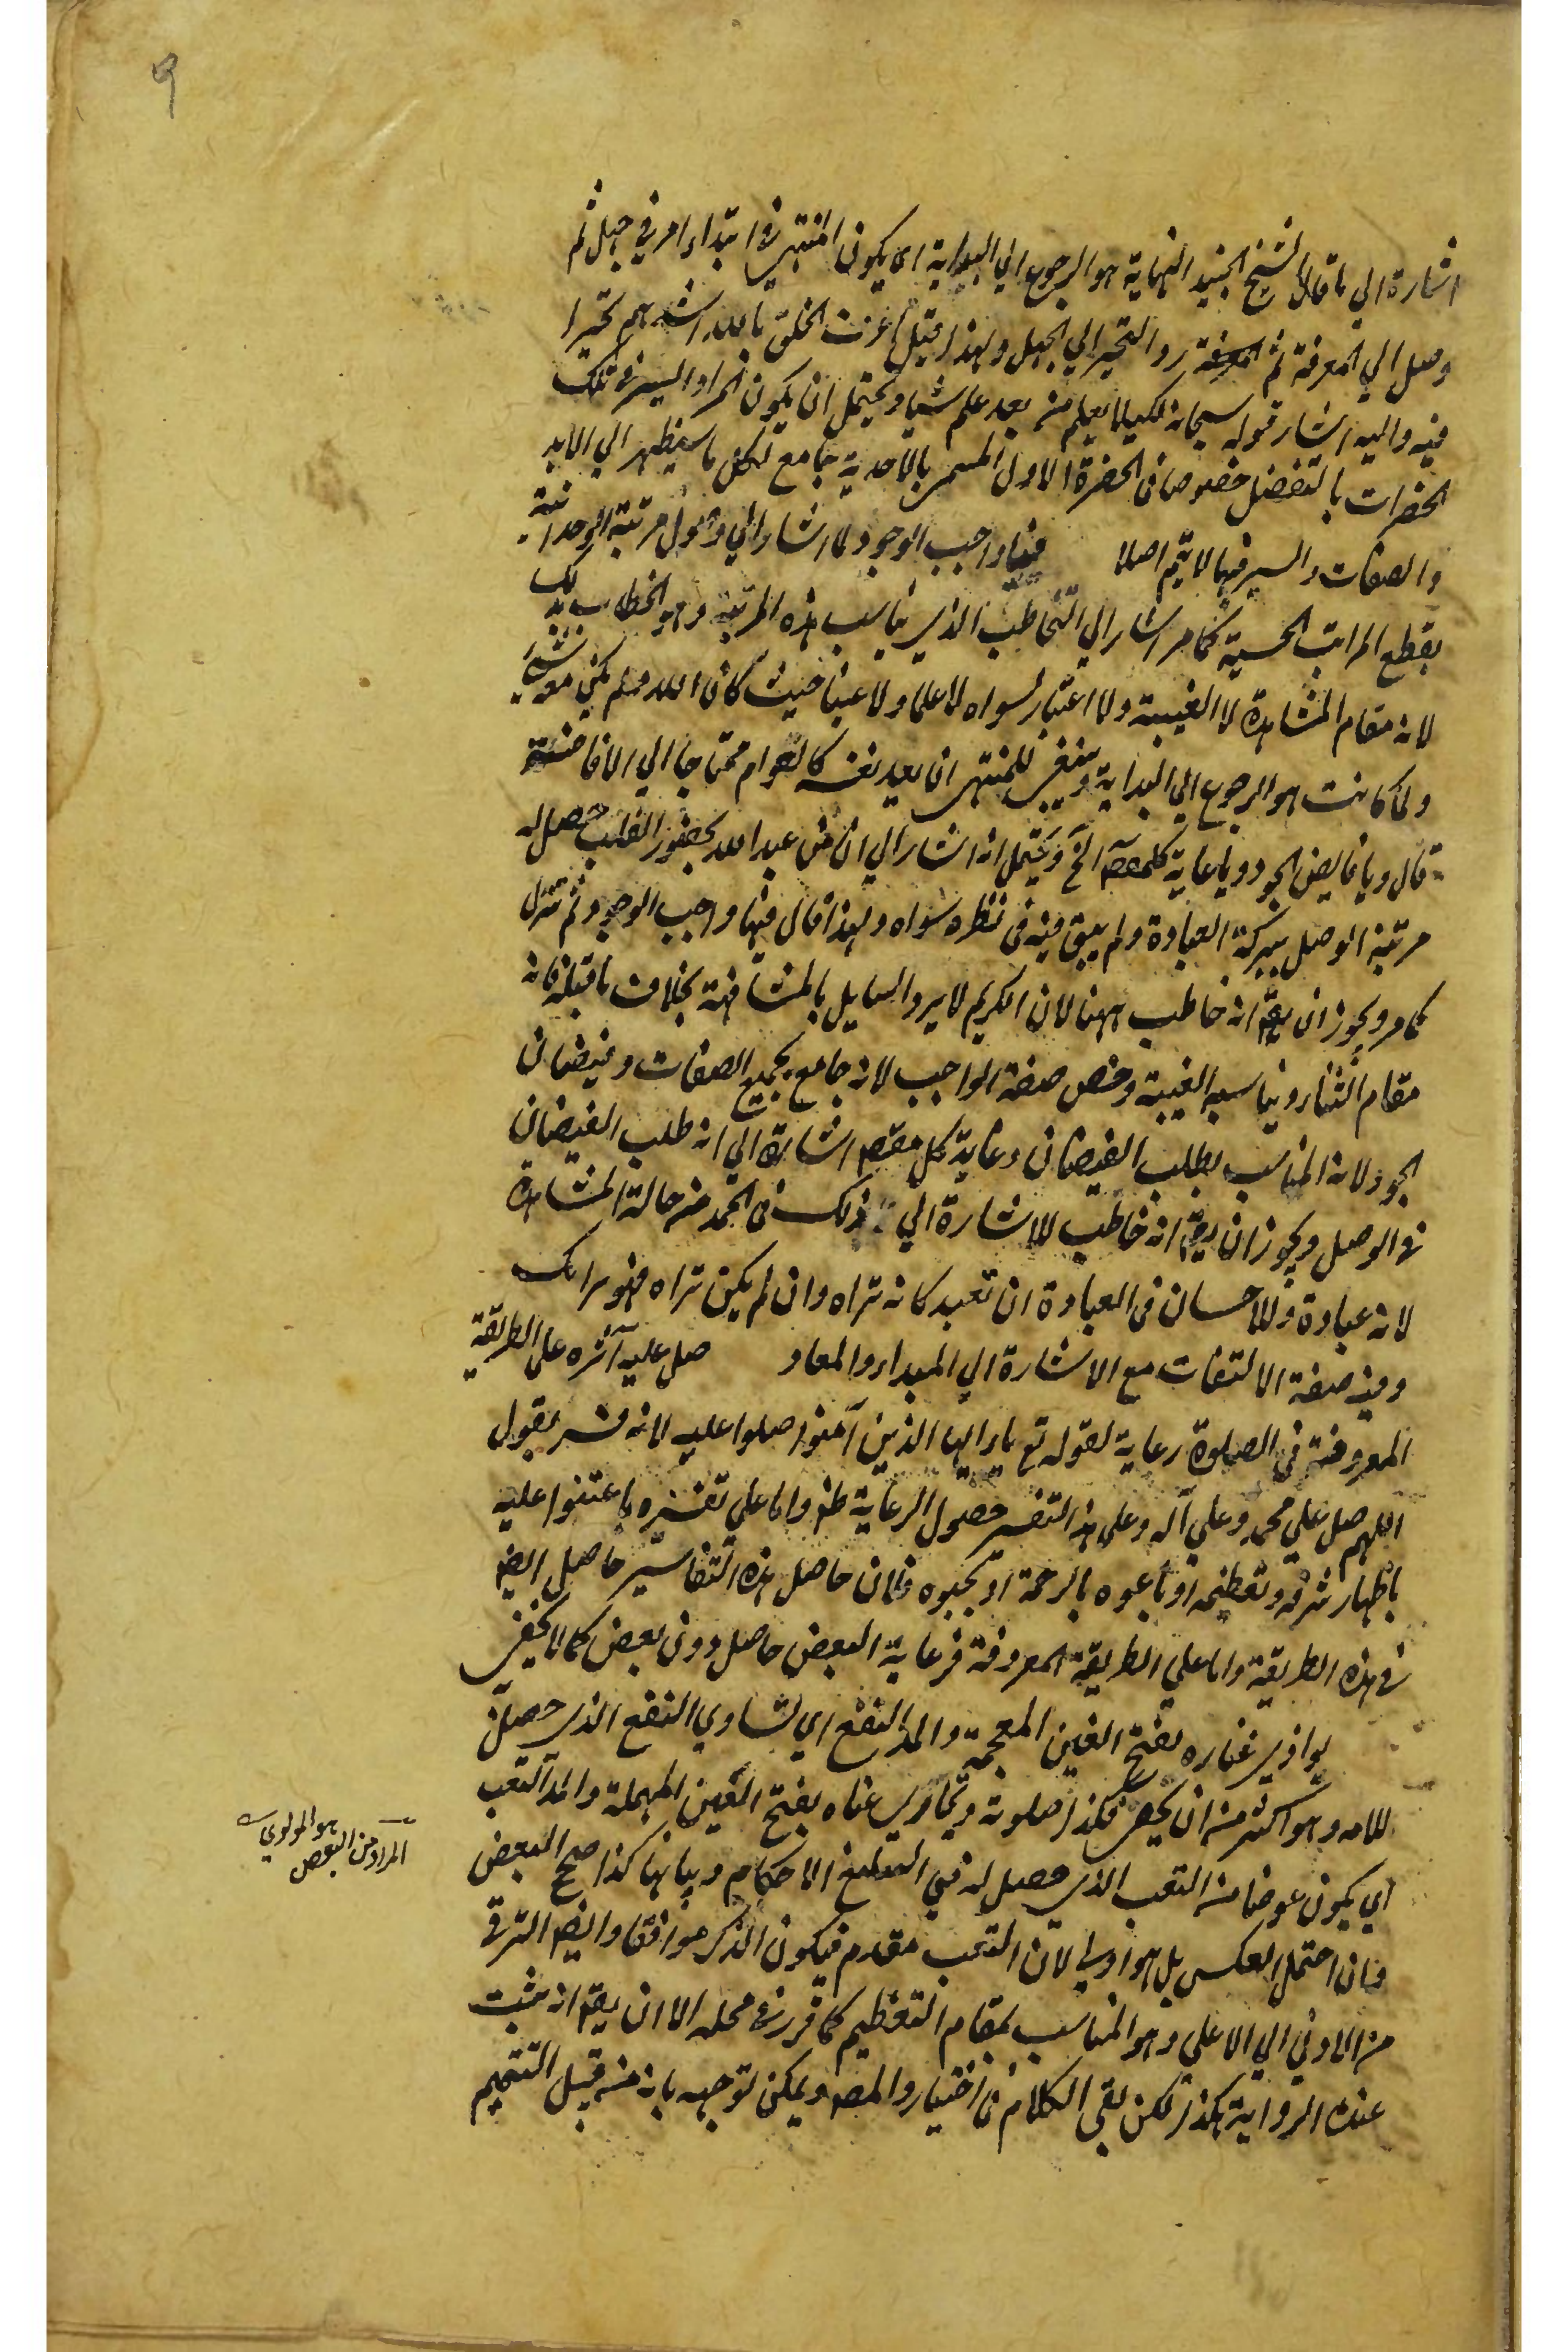 ٩
اشارة الي ما قال الشيخ الجنيد النهاية هو الرجوع الي البداية اى يكون المنتهى فى ابتداء امر في جهل ثم
وصل الي المعرفة ثم رد التحير الي الجهل ولهذا قيل اعرف الخلق بالله اشدهم تحيرا
فيه واليه اشار قوله سبحانه لكيلا يعلم من بعد علم شيا ويحتمل ان يكون المراد السير فى تلك
الحضرات بالتفصيل خصوصا فى الحضرة الاول المسمى بالاحدية جامع لكل ما سيظهر الي الابد
والصفات والسير فيها لا يتم اصلا فيا واجب الوجود لما اشار الي وصول مرتبة الوحدانية
بقطع المراتب الحسية كما مر اشار الي التخاطب الذي يناسب هذه المرتبة وهو الخطاب بذلك
لانه مقام المشاهدة لا الغيبة ولا اعتبار لسواه لا علما ولا عينا حيث كان الله ولم يكن معه شئ
ولما كانت هو الرجوع الي البداية وينبغى للمنتهى ان يعد نفسه كالعوام محتاجا الي الافاضة
قال ويا فايض الجود ويا غاية كل مقصد الخ ويحتمل انه اشار الي ان من عبد الله بحضور القلب حصل له
مرتبة الوصل ببركة العبادة ولم يبق فيه فى نظره سواه ولهذا قال فيا واجب الوجود ثم تنزل
كما مر ويجوز ان يقم انه خاطب ههنا لان الكريم لا يرد السايل بالمشافهة بخلاف ما قبله فانه
مقام الثناء ويناسبه الغيبة وخص صفة الواجب لانه جامع بجميع الصفات وفيضان
الجود لانه المناسب بطلب الفيضان وغاية كل مقصد اشارة الي انه طلب الفيضان
فى الوصل ويجوز ان يقم انه خاطب للاشارة الي ذلك فى الحمد من حالة المشاهدة
لانه عبادة والاحسان فى العبادة ان تعبد كانه تراه وان لم يكن تراه فهو يراك
وفيه صفة الالتفات مع الاشارة الي المبداء والمعاد صل عليه آثره على الطريقة
المعروفة في الصلوة رعاية لقوله تع يا ايها الذين آمنوا صلوا عليه لانه فسر بقول
اللهم صل على محمد وعلى آله وعلى هذا التفسير حصول الرعاية ظم واما على تفسيره باعتنوا عليه
باظهار شرفه وتعظيمه او بادعوه بالرحمة او بحبوه فلان حاصل هذه التفاسير حاصل ايضا
فى هذه الطريقة واما على الطريقة المعروفة فرعاية البعض حاصل دون بعض كما لا يخفى
يوازي غناءه بفتح الغين المعجمة والمد النفع اي تساوي النفع الذى حصل
للامة وهو اكثر من ان يحصى فكذا صلوته ويحازي عناه بفتح العين المهملة والمد التعب
اي يكون عوضا من التعب الذى حصل له في التبليغ الاحكام وبيانها كذا صحح البعض
وان احتمل العكس بل هو اولى لان التعب مقدم فيكون الذكر موافقا وايضا الترقى
من الادني الي الاعلى وهو المناسب بمقام التعظيم كما قرر فى محله الا ان يقم انه ثبت
عنده الرواية هكذا لكن بقى الكلام فى اختيار المصم ويمكن توجيه بانه من قبيل التتميم
المراد من البعض
هو المولوي